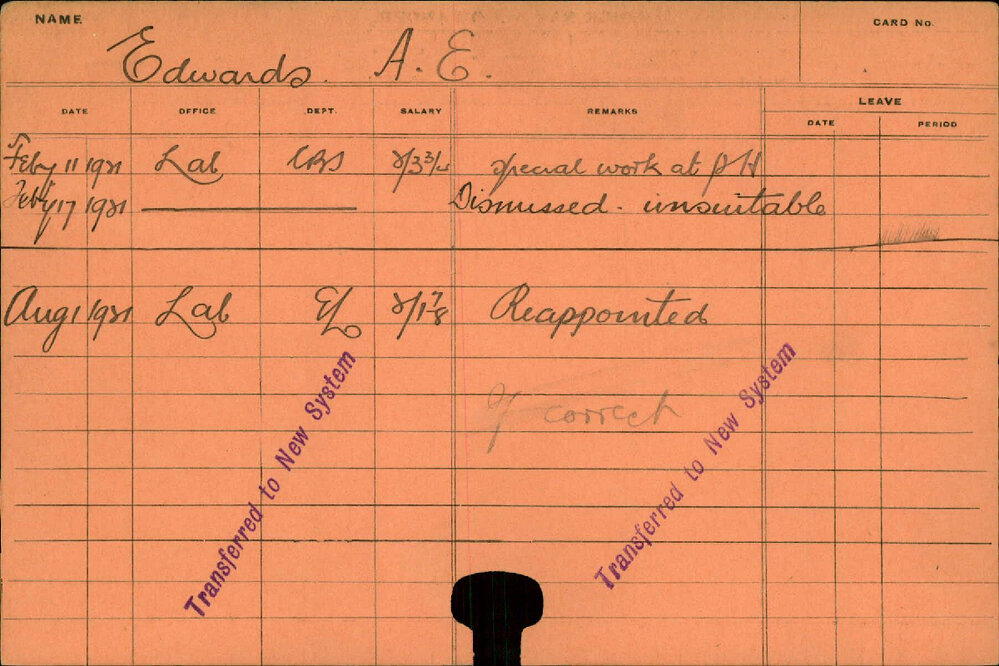 NAME
CARD No.
Edwards. A. E.
DATE OFFICE DEPT. SALARY REMARKS LEAVE
DATE PERIOD
Feby 11 1921 Lab CBS 2/3 3/4 special work at PH
Feby 17 1921 Dismissed - unsuitable
Aug 1 1921 Lab E/L 2/1 7/8 Reappointed
correct
Transferred to New System
Transferred to New System